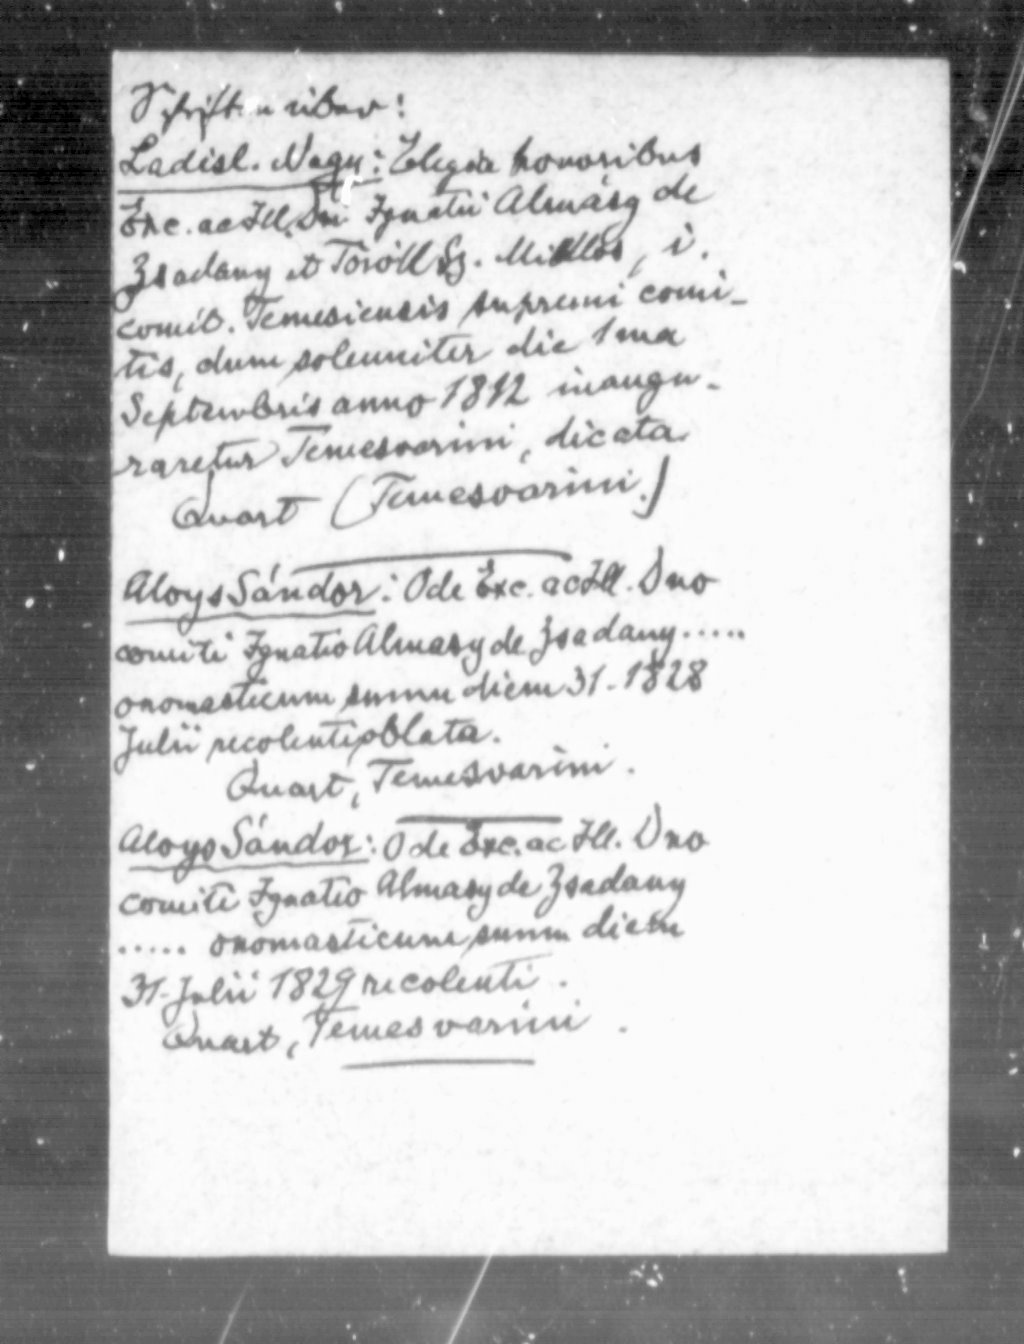 Schriften über:
Ladisl. Nagy: Elegia honoribus
Exc. ac Ill. Dni Ignatii Almásy de
Zsadany et Török Sz. Miklos, i.
comit. Temesiensis supremi comi-
tis, dum solemniter die 1ma
Septembris anno 1812 inaugu-
raretur Temesvarini, dicata
Quart (Temesvarini.)
Aloys Sándor: Ode Exc. ac Ill. Dno
comiti Ignatio Almasy de Zsadany.....
onomasticum suum diem 31. 1828
Julii recolenti oblata.
Quart, Temesvarini.
Aloys Sándor: Ode Exc. ac Ill. Dno
comiti Ignatio Almasy de Zsadany
..... onomasticum suum diem
31. Julii 1829 recolenti.
Quart, Temesvarini.